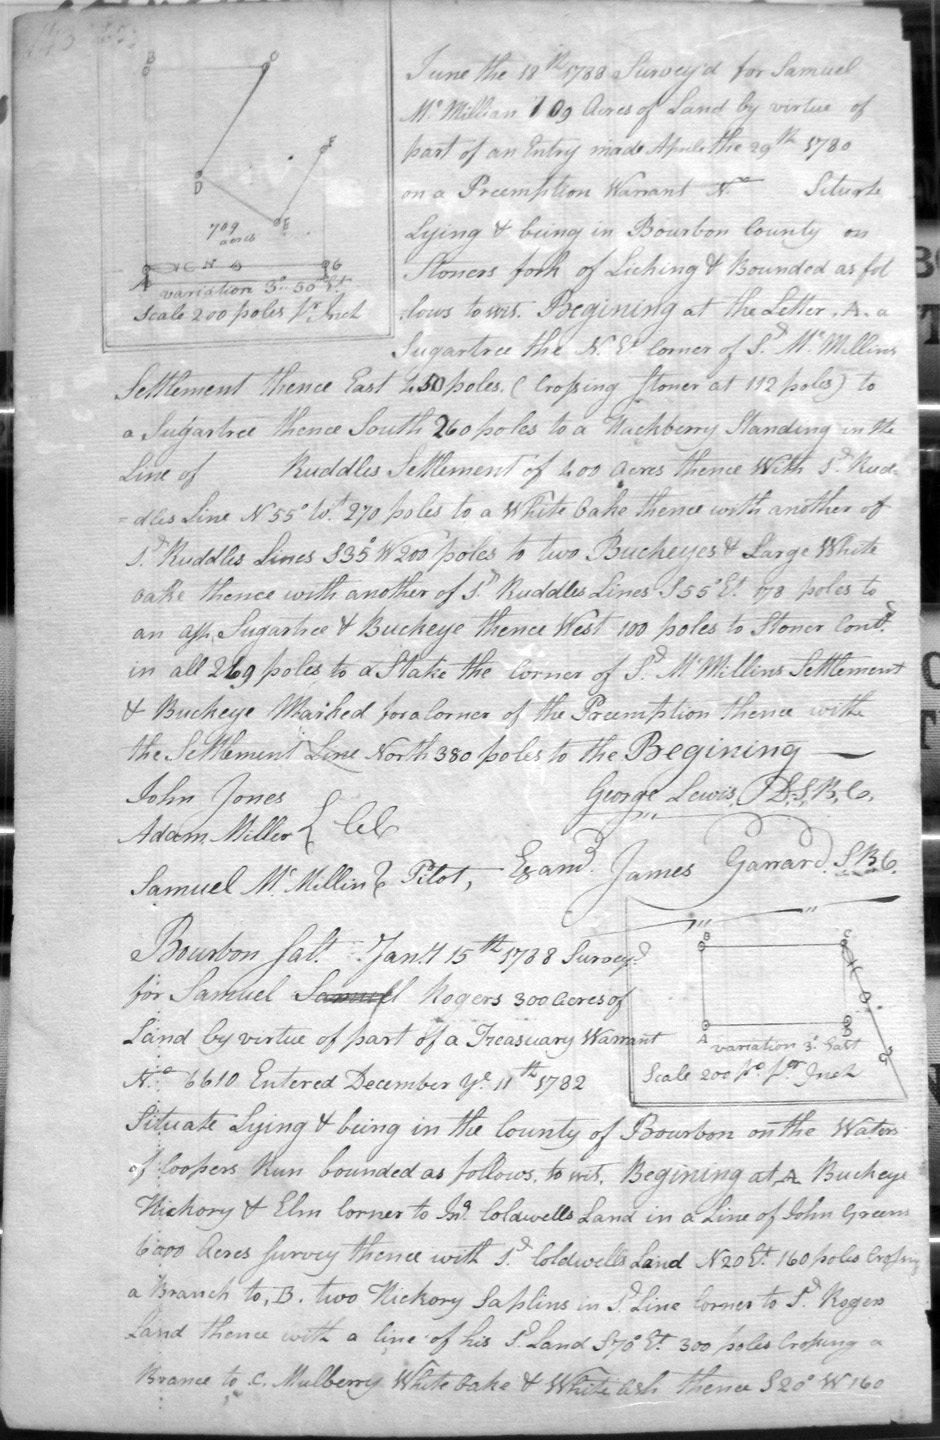 B C
D E F
709
acres
A G
variation 3° 50' Et.
Scale 200 poles pr. Inch
June the 18th 1788 Survey'd for Samuel
McMillian 709 Acres of Land by virtue of
part of an Entry made April the 29th 1780
on a Preemption Warrant No Situate
Lying & being in Bourbon County on
Stoners fork of Licking & Bounded as fol
lows to wit. Begining at the Letter .A. a
Sugartree the N. Et. Corner of Sd. McMillins
Settlement thence East 450 poles. (Crossing Stoner at 112 poles) to
a Sugartree thence South 260 poles to a Hackberry Standing in the
Line of Ruddles Settlement of 400 acres thence With Sd. Rud=
=dles Line N 55° Wt. 270 poles to a White Oake thence with another of
Sd. Ruddles Lines S35° W 200 poles to two Buckeyes & Large White
oake thence with another of Sd. Ruddles Lines S55° Et. 178 poles to
an ash, Sugartree & Buckeye thence West 100 poles to Stoner Contd.
in all 269 poles to a Stake the Corner of Sd. McMillins Settlement
& Buckeye Marked for a Corner of the Preemption thence with
the Settlement Line North 380 poles to the Begining
John Jones George Lewis, D.S.B.C.
Adam Miller } CC
Samuel McMillin } Pilot, Examd. James Garrard. S.B.C.
Bourbon Sct. Jany 15th 1788 Surveyd.
for Samuel Samuel Rogers 300 acres of
Land by virtue of part of a Treasuary Warrant
No 6610 Entered December Ye. 11th 1782
B C
A D
variation 3° East
Scale 200 po. pr Inch
Situate Lying & being in the County of Bourbon on the Waters
of Coopers Run bounded as follows. to wit. Begining at A Buckeye
Hickory & Elm Corner to Jno. Coldwells Land in a Line of John Greens
6000 Acres Survey thence with Sd. Coldwells Land N20 Et. 160 poles Crossing
a Branch to, B. two Hickory Saplins in Sd. Line Corner to Sd. Rogers
Land thence with a line of his Sd. Land S70° Et. 300 poles Crossing a
Brance to .C. Mulberry White Oake & White Ash thence S20° W 160